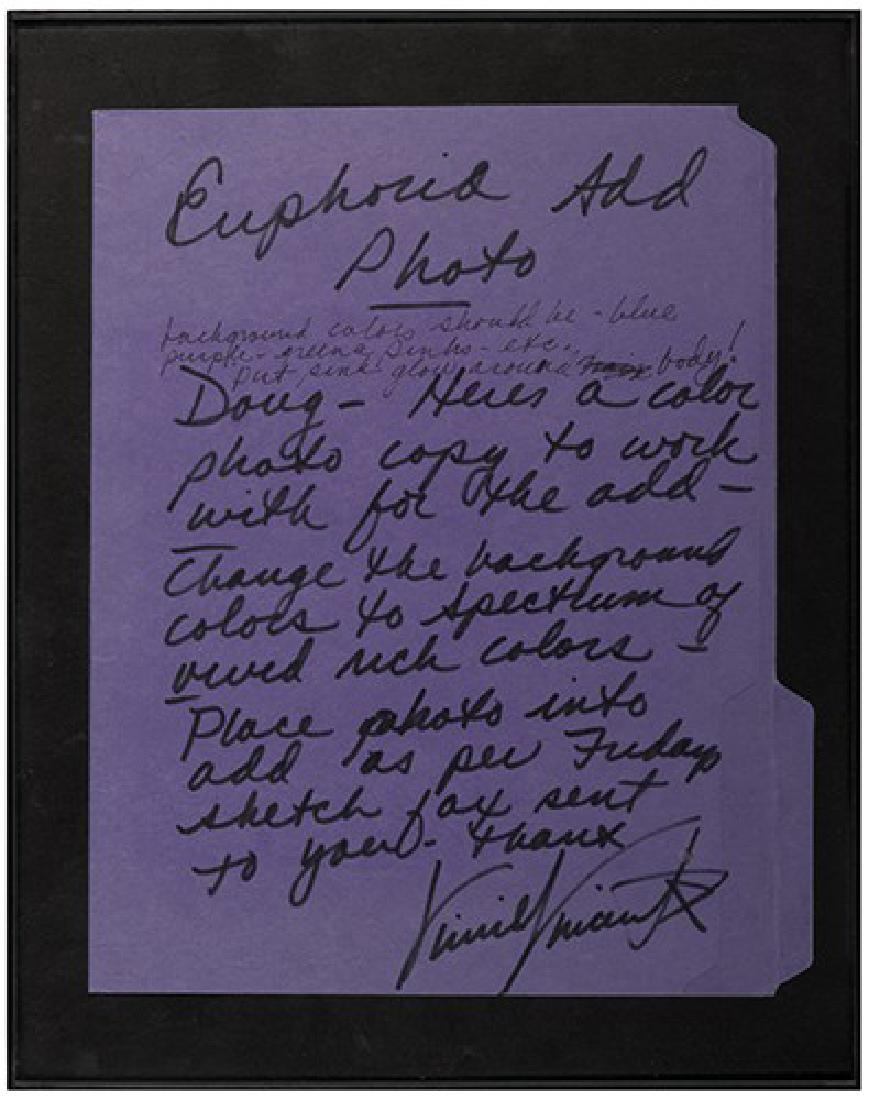 Euphoria Add
Photo
background colors should be - blue
purple - greens, pinks - etc.,
put pink glow around body!
Doug - Heres a color
photo copy to work
with for the add -
Change the background
colors to spectrum of
vived rich colors -
Place photo into
add as per Friday
sketch fax sent
to you - thanx
Vinnie Vincent